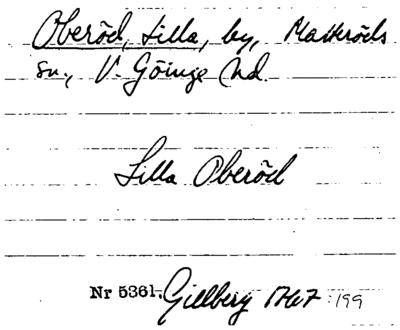 Oberöd, Lilla, by, Matteröds
sn., V. Göinge hd.
Lilla Oberöd
Nr 5361. Gillberg 1767 : 199